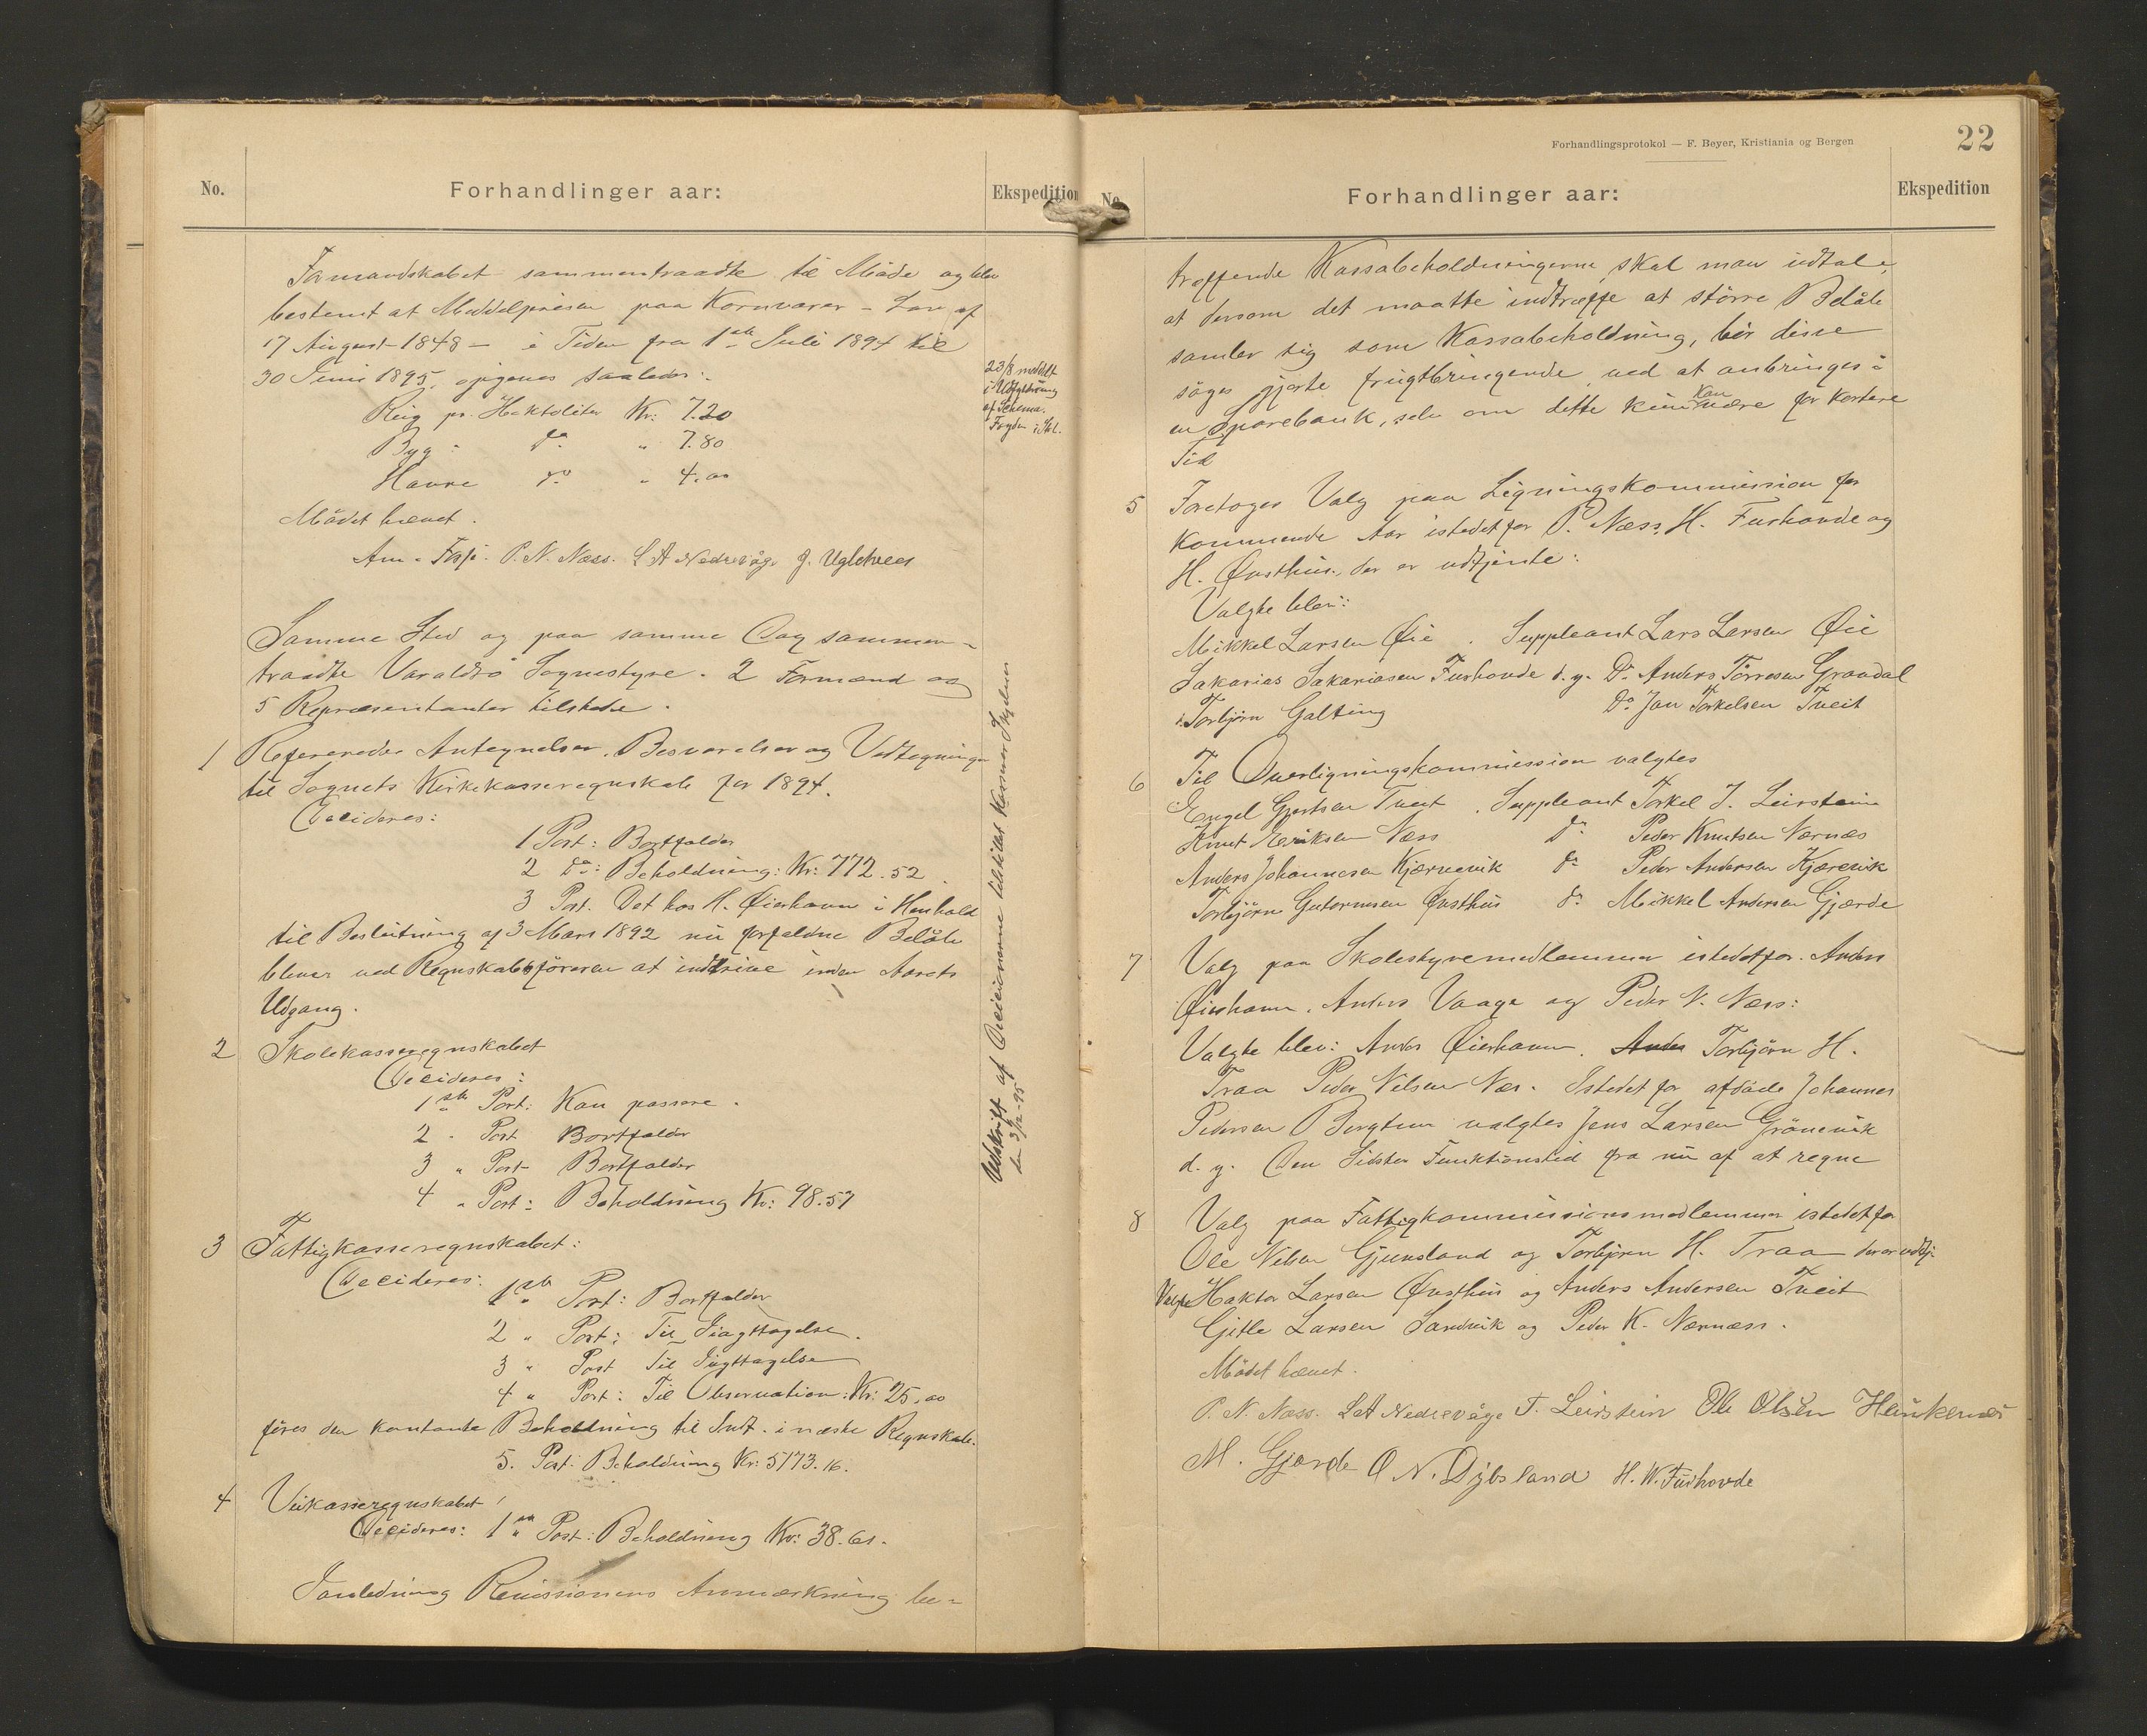 No.
Forhandlinger aar:
Ekspedition
Formandskabet sammentraadte til Møde og blev
bestemt at Middelprisen paa Kornvarer - Lov af
17 August 1848 - i Tiden fra 1ste Juli 1894 til
30 Juni 1895, opgives saaledes:
Rug pr. Hektoliter Kr: 7.20
Byg " do " 7.80
Havre do " 4.00
23/8 meddelt
i Udfyldning
af Schema.
Fogden i
Mödet hævet.
P. N. Næss. L A Nedrevåge J. Uglehus
Samme Sted og paa samme Dag sammen-
traadte Varaldsö Sognestyre. 2 Formænd og
5 Repræsentanter tilstede.
1 Refereredes Antegnelser, Besvarelser og Vedtegninger
til Sognets Kirkekasseregnskab for 1894.
Decideres:
1 Post: Bortfalder
2 do: Beholdning: Kr: 772.52
3 Post. Det hos H. Øierhavn i Henhold
til Beslutning af 3 Mars 1892 nu forfaldne Belöb
bliver ved Regnskabsföreren at inddrive inden Aarets
Udgang.
2 Skolekasseregnskabet
Decideres:
1ste Post: Kan passere.
2 " Post Bortfalder
3 " Post Bortfalder
4 " Post: Beholdning Kr: 98.57
3 Fattigkasseregnskabet:
Decideres: 1ste Post: Bortfalder
2 " Post: Til Iagttagelse.
3 " Post Til Iagttagelse
4 " Post: Til Observation: Kr: 25.00
föres den kontante Beholdning til Indt. i næste Regnskab.
5. Post: Beholdning Kr: 5173.16.
4 Veikasseregnskabet!
Decideres: 1ste Post: Beholdning Kr: 38.61.
I anledning Revissionens Anmærkning be-
Udskrift af Decisionerne tilstillet Kasserer
den 3/12-95
Forhandlingsprotokol — F. Beyer, Kristiania og Bergen
22
No.
Forhandlinger aar:
Ekspedition
træffende Kassabeholdningerne, skal man udtale,
at dersom det maatte indtræffe at större Belöb
samler sig som Kassabeholdning, bör disse
söges gjorte frugtbringende ved at anbringes i
en Sparebank, selv om dette kun kan være for kortere
Tid
5 Foretoges Valg paa Ligningskommission for
kommende Aar istedetfor P. Næss, H. Furhovde og
H. Øvsthus, der er udtjente:
Valgte blev:
Mikkel Larsen Øie. Suppleant Lars Larsen Øie
Sakarias Sakariasen Furhovde d. y. Do Anders Torresen Graadal
Torbjörn Galtung Do Jan Torkelsen Tveit
6 Til Overligningskommission valgtes
Engel Gjertsen Tveit. Suppleant Torkel J. Leirstein
Knut Eeriksen Næss do Peder Knutsen Nernæs
Anders Johannesen Kjærvevik do Peder Andersen Kjærevik
Torbjörn Gutormsen Øvsthus do Mikkel Andersen Gjærde
7 Valg paa Skolestyremedlemmer istedetfor. Anders
Øierhavn, Anders Vaage og Peder N. Næss:
Valgte blev: Anders Øierhavn. Anders Torbjörn H.
Traa Peder Nilsen Næs. Istedet for afdöde Johannes
Pedersen Bergtun valgtes Jens Larsen Grönevik
d. y. Den Sidstes Funktionstid fra nu af at regne
8 Valg paa Fattigkommissionsmedlemmer istedetfor
Ole Nilsen Gjuvsland og Torbjörn H. Traa der er udtj.
Valgte Haktor Larsen Øvsthus og Anders Andersen Tveit
Gitle Larsen Sandvik og Peder K. Nernæss.
Mödet hævet.
P. N. Næss. L A Nedrevåge T. Leirstein Ole Olsen Heinkenes
M. Gjærde O N. Djubsland H. W. Furhovde